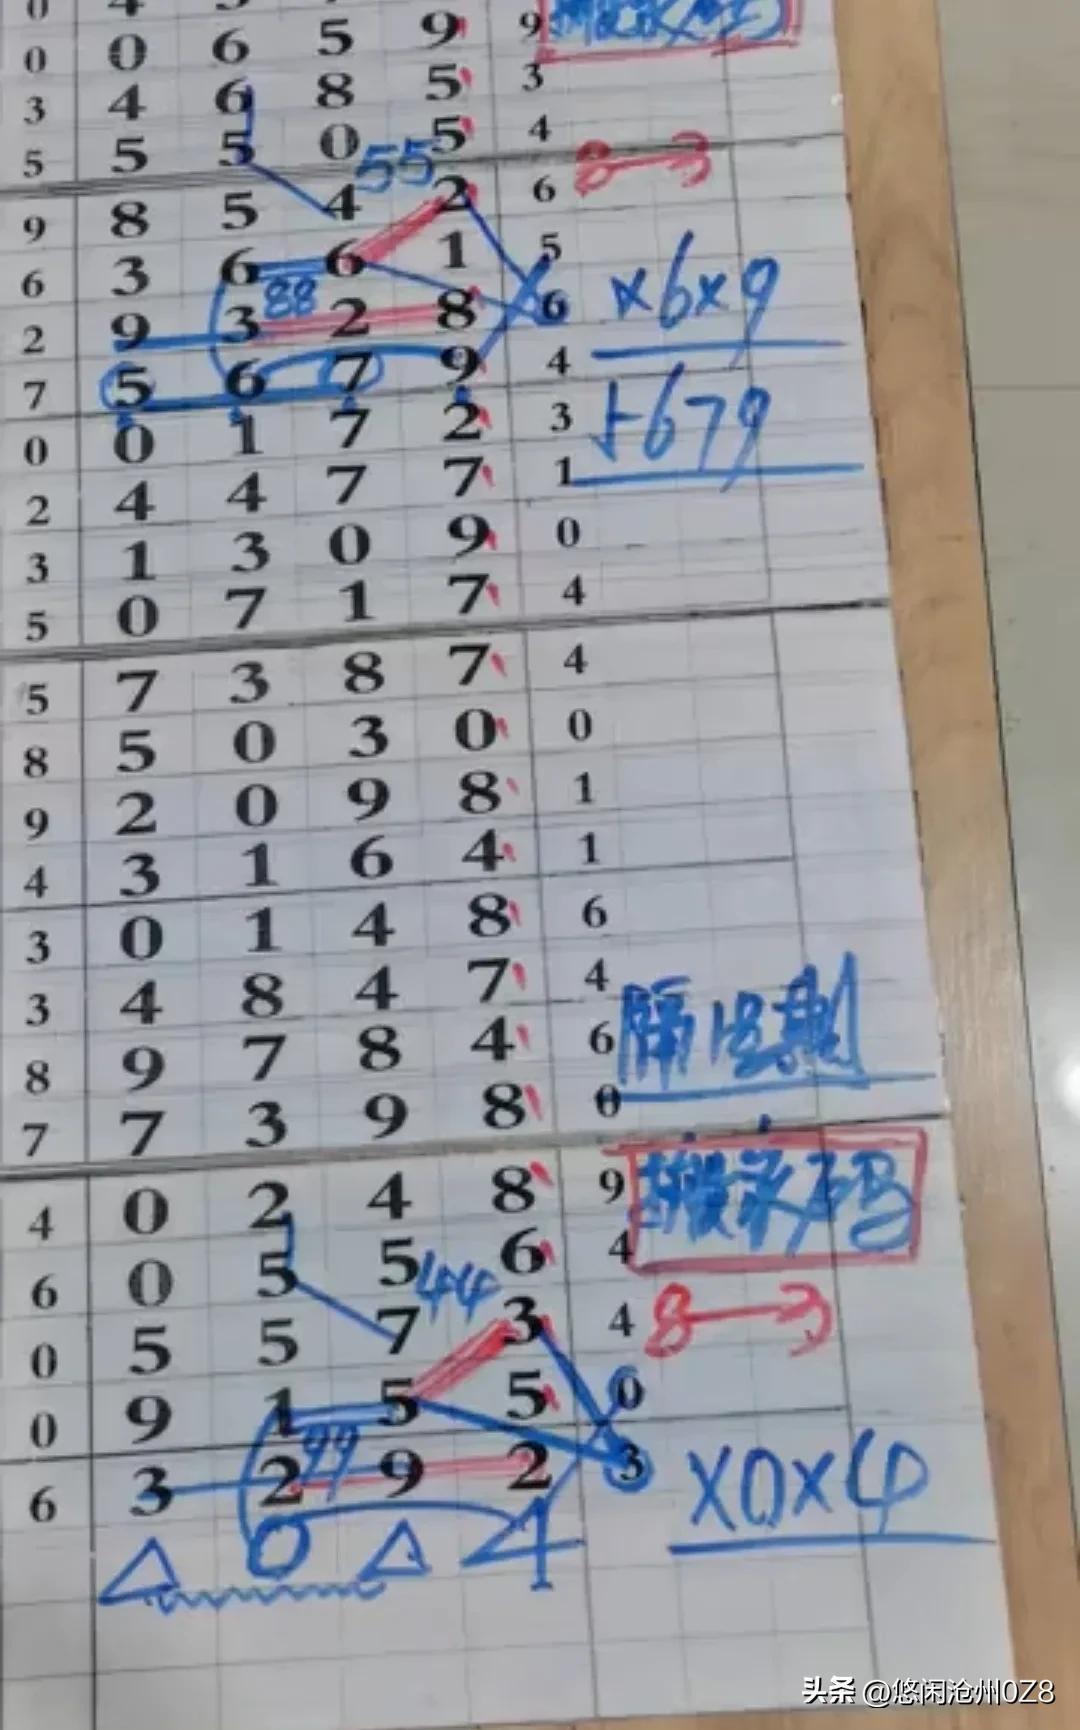 0 0 6 5 9 9
3 4 6 8 5 3
5 5 5 0 5 4
55
9 8 5 4 2 6 8 3
6 3 6 6 1 5
88
2 9 3 2 8 6 ×6×9
7 5 6 7 9 4
0 0 1 7 2 3 5679
2 4 4 7 7 1
3 1 3 0 9 0
5 0 7 1 7 4
5 7 3 8 7 4
8 5 0 3 0 0
9 2 0 9 8 1
4 3 1 6 4 1
3 0 1 4 8 6
3 4 8 4 7 4
8 9 7 8 4 6
7 7 3 9 8 0
4 0 2 4 8 9
6 0 5 5 6 4
44
0 5 5 7 3 4 8 3
0 9 1 5 5 0
99
6 3 2 9 2 3 ×0×4
0 4
头条 @悠闲沧州0Z8